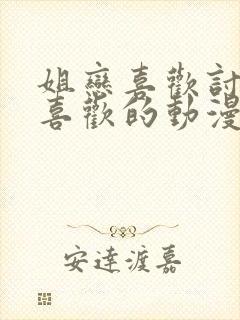 姐戀喜歡討
喜歡的動漫
安達渡嘉